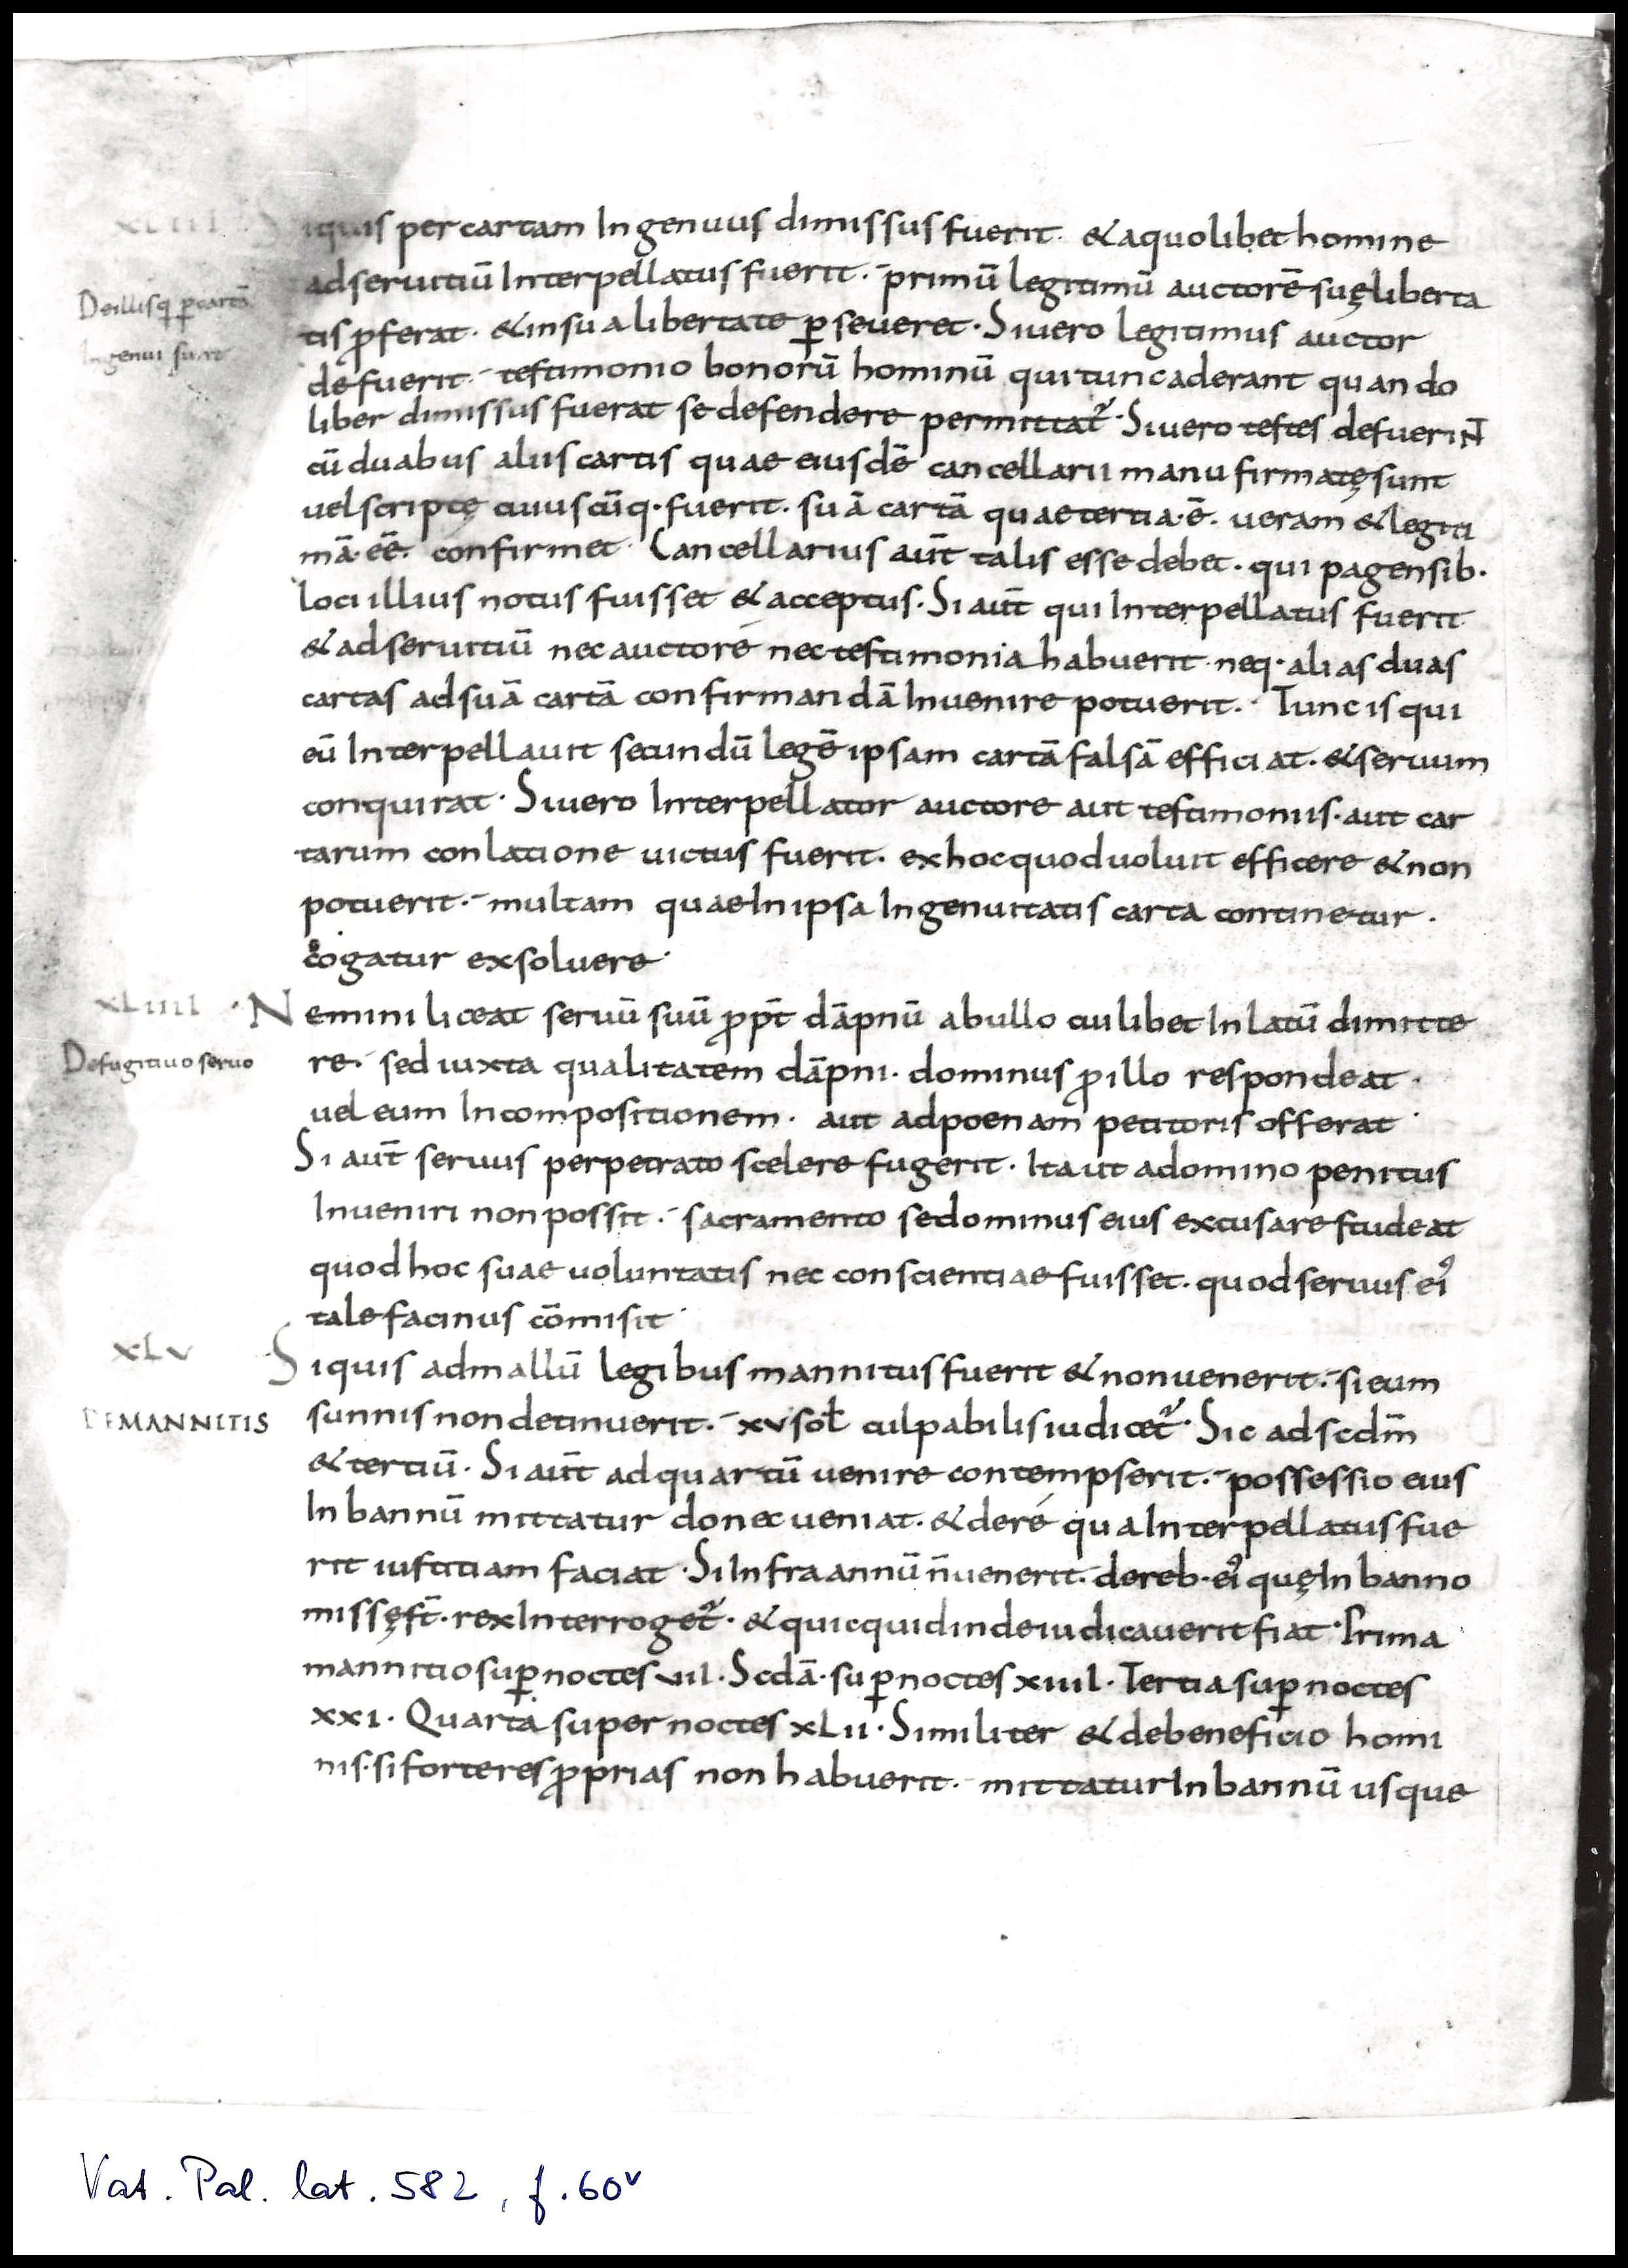 XLIII Siquis per cartam Ingenuus dimissus fuerit. & a quolibet homine
ad seruitiū Interpellatus fuerit. primū legitimū auctorē suę liberta
De illis q̄ ꝑ cartā
tis ꝓferat. & in sua libertate ꝑseueret. Si uero legitimus auctor
Ingenui sunt
defuerit. testimonio bonorū hominū qui tunc aderant quando
liber dimissus fuerat se defendere permittat᷑. Si uero testes defuerint̄
cū duabus aliis cartis quae eiusdē cancellarii manu firmatę sunt
uel scriptę cuiuscūq. fuerit. suā cartā quae tertia. ē. ueram & legiti
mā. eē. confirmet. Cancellarius aut̄ talis esse debet. qui pagensib.
loci illius notus fuisset & acceptus. Si aut̄ qui Interpellatus fuerit
& ad seruitiū nec auctoré nec testimonia habuerit neq. alias duas
cartas ad suā cartā confirmandā Inuenire potuerit. Tunc is qui
eū Interpellauit secundū legē ipsam cartā falsā efficiat. & seruum
conquirat. Si uero Interpellator auctore aut testimoniis. aut car
tarum conlatione uictus fuerit. ex hoc quod uoluit efficere & non
potuerit. multam quae In ipsa Ingenuitatis carta continetur.
cogatur exsoluere.
XLIIII Nemini liceat seruū suū ꝓpt̄ dāpnū ab ullo cuilibet Inlatū dimitte
De fugitiuo seruo
re. sed iuxta qualitatem dāpni. dominus ꝓ illo respondeat.
uel eum In compositionem. aut ad poenam petitoris offerat.
Si aut̄ seruus perpetrato scelere fugerit. Ita ut a domino penitus
Inueniri non possit. sacramento se dominus eius excusare studeat
quod hoc suae uoluntatis nec conscientiae fuisset. quod seruus ei᷒
tale facinus cōmisit.
XLV Siquis ad mallū legibus mannitus fuerit & non uenerit. si eum
DE MANNITIS
sunnis non detinuerit. xv sol̄ culpabilis iudicet᷑. Sic ad scdm̄
& tertiū. Si aut̄ ad quartū uenire contempserit. possessio eius
In bannū mittatur donec ueniat. & de ré qua Interpellatus fue
rit iustitiam faciat. Si Infra annū n̄ uenerit. de reb. ei᷒ quę In banno
missę st̄. rex Interroget᷑. & quicquid inde iudicauerit fiat. Prima
mannitio suꝑ noctes vII. Scdā. suꝑ noctes xIIII. Tertia suꝑ noctes
xxI. Quarta super noctes xLII. Similiter & de beneficio homi
nis. si forte res ꝓprias non habuerit. mittatur In bannū usque
Vat. Pal. lat. 582, f. 60v